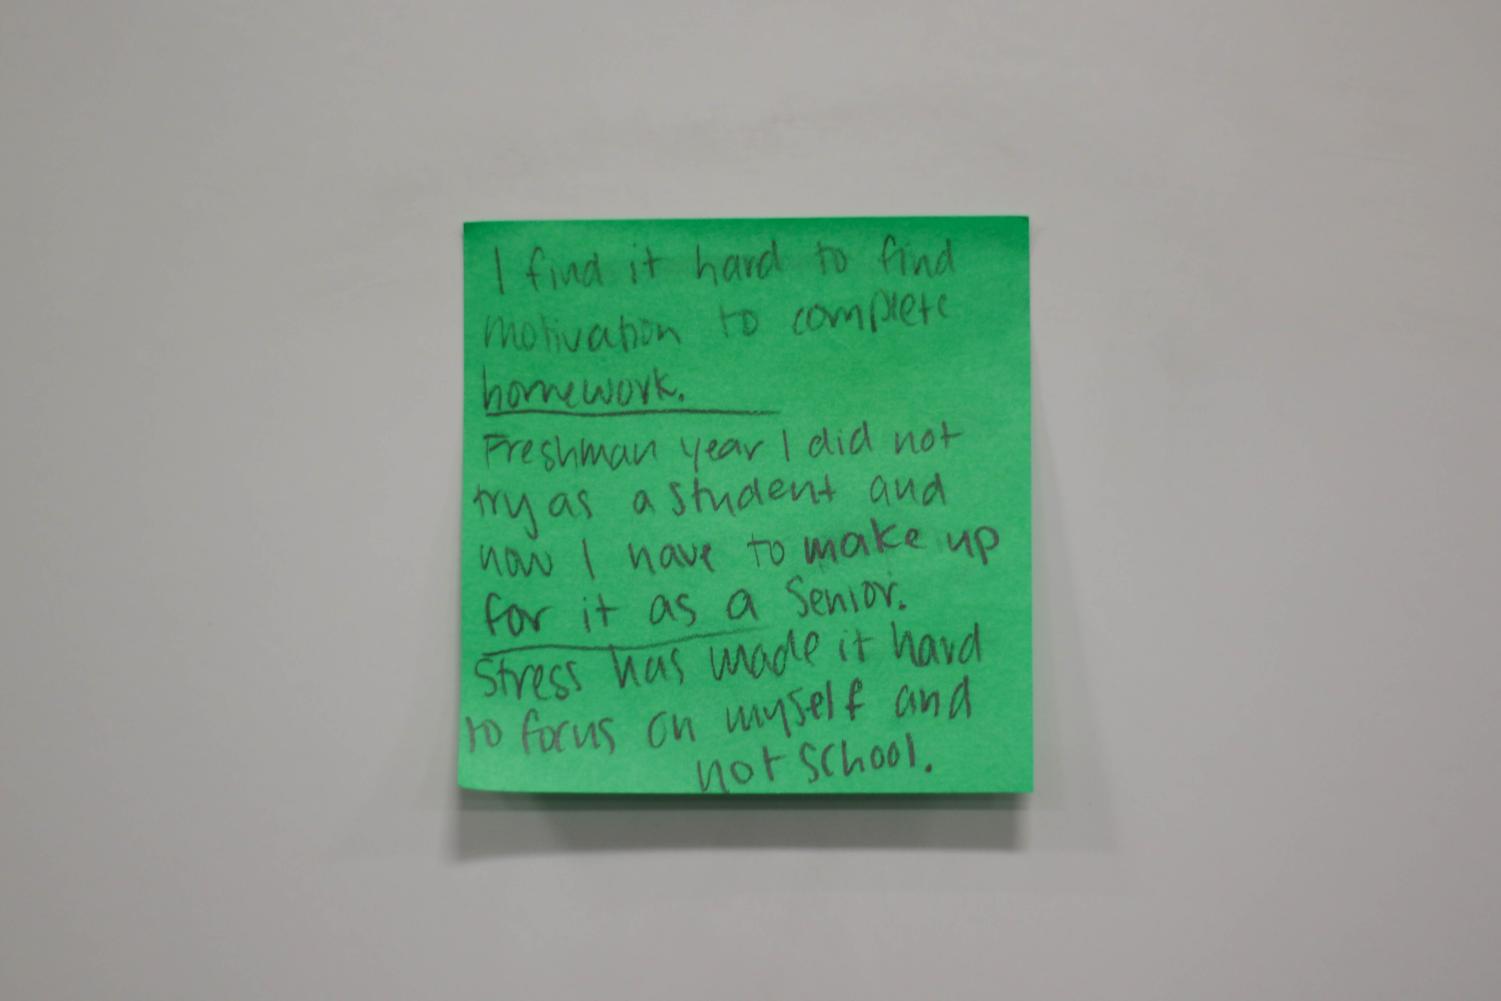 I find it hard to find
motivation to complete
homework.
Freshman year I did not
try as a student and
now I have to make up
for it as a Senior.
Stress has made it hard
to focus on myself and
not school.